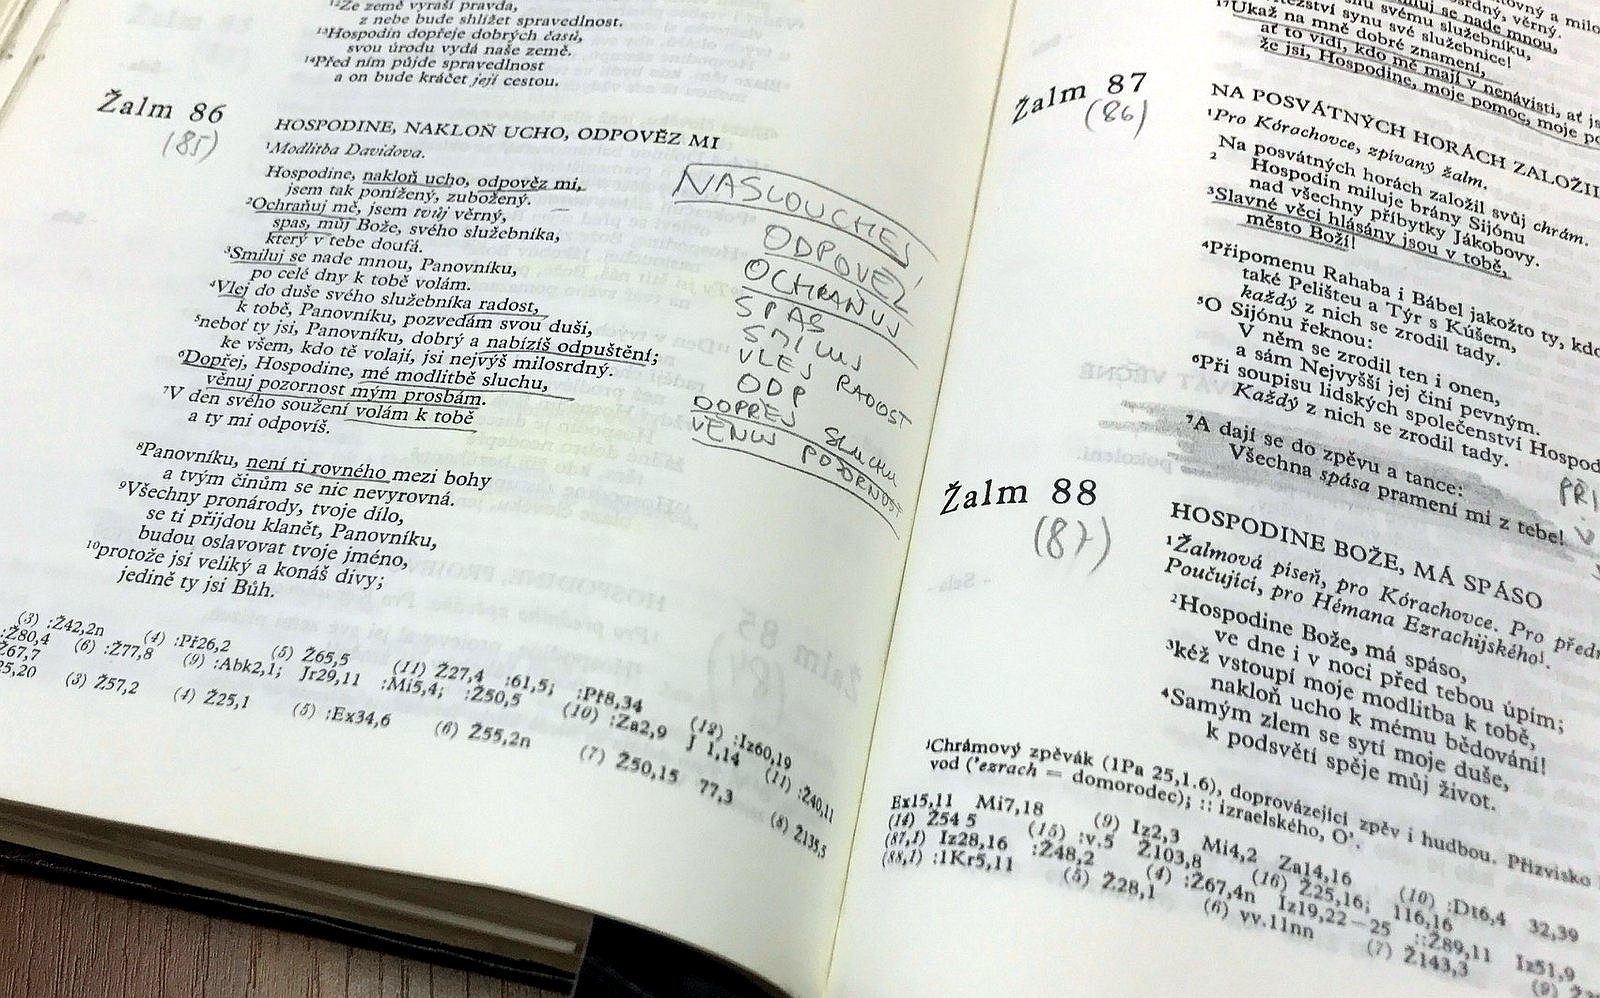 ¹²Ze země vyraší pravda,
z nebe bude shlížet spravedlnost.
¹³Hospodin dopřeje dobrých časů,
svou úrodu vydá naše země.
¹⁴Před ním půjde spravedlnost
a on bude kráčet její cestou.
Žalm 86
(85)
HOSPODINE, NAKLOŇ UCHO, ODPOVĚZ MI
¹Modlitba Davidova.
Hospodine, nakloň ucho, odpověz mi,
jsem tak ponížený, zubožený.
²Ochraňuj mě, jsem tvůj věrný,
spas, můj Bože, svého služebníka,
který v tebe doufá.
³Smiluj se nade mnou, Panovníku,
po celé dny k tobě volám.
⁴Vlej do duše svého služebníka radost,
k tobě, Panovníku, pozvedám svou duši,
⁵neboť ty jsi, Panovníku, dobrý a nabízíš odpuštění;
ke všem, kdo tě volají, jsi nejvýš milosrdný.
⁶Dopřej, Hospodine, mé modlitbě sluchu,
věnuj pozornost mým prosbám.
⁷V den svého soužení volám k tobě
a ty mi odpovíš.
⁸Panovníku, není ti rovného mezi bohy
a tvým činům se nic nevyrovná.
⁹Všechny pronárody, tvoje dílo,
se ti přijdou klanět, Panovníku,
budou oslavovat tvoje jméno,
¹⁰protože jsi veliký a konáš divy;
jedině ty jsi Bůh.
NASLOUCHEJ
ODPOVĚZ
OCHRAŇUJ
SPAS
SMILUJ
VLEJ RADOST
ODP
DOPŘEJ SLUCHU
VĚNUJ POZORNOST
(3) :Ž42,2n (4) :Př26,2 (5) Ž65,5 (11) Ž27,4 :61,5; :Př8,34 (12) :Iz60,19
:Ž80,4 (6) :Ž77,8 (9) :Abk2,1; Jr29,11 :Mi5,4; :Ž50,5 (10) :Za2,9 J 1,14 (11) :Ž40,11
Ž67,7
25,20 (3) Ž57,2 (4) Ž25,1 (5) :Ex34,6 (6) Ž55,2n (7) Ž50,15 77,3 (8) Ž135,5
se nade mnou,
svému služebníku,
synu své služebnice!
¹⁷Ukaž na mně dobré znamení,
ať to vidí, kdo mě mají v nenávisti, ať
že jsi, Hospodine, moje pomoc, moje
Žalm 87
(86)
NA POSVÁTNÝCH HORÁCH ZALOŽIL
¹Pro Kórachovce, zpívaný žalm.
² Na posvátných horách založil svůj chrám.
Hospodin miluje brány Sijónu
nad všechny příbytky Jákobovy.
³Slavné věci hlásány jsou v tobě,
město Boží!
⁴Připomenu Rahaba i Bábel jakožto ty, kdo
také Pelišteu a Týr s Kúšem,
každý z nich se zrodil tady.
⁵O Sijónu řeknou:
V něm se zrodil ten i onen,
a sám Nejvyšší jej činí pevným.
⁶Při soupisu lidských společenství
Každý z nich se zrodil tady.
⁷A dají se do zpěvu a tance:
Všechna spása pramení mi z tebe!
Žalm 88
(87)
HOSPODINE BOŽE, MÁ SPÁSO
¹Žalmová píseň, pro Kórachovce. Pro
Poučující, pro Hémana Ezrachijského¹.
²Hospodine Bože, má spáso,
ve dne i v noci před tebou úpím;
³kéž vstoupí moje modlitba k tobě,
nakloň ucho k mému bědování!
⁴Samým zlem se sytí moje duše,
k podsvětí spěje můj život.
¹Chrámový zpěvák (1Pa 25,1.6), doprovázející zpěv i hudbou. Přízvisko
vod ('ezrach = domorodec); :: izraelského, O'.
Ex15,11 Mi7,18 (9) Iz2,3 Mi4,2 Za14,16 (10) :Dt6,4 32,39
(14) Ž54 5 (15) :v.5 Ž103,8 (16) Ž25,16; 116,16
(87,1) Iz28,16 :Ž48,2 (4) :Ž67,4n Iz19,22–25 ::Ž89,11 Iz51,9
(88,1) :1Kr5,11 (5) Ž28,1 (6) vv.11nn (7) Ž143,3